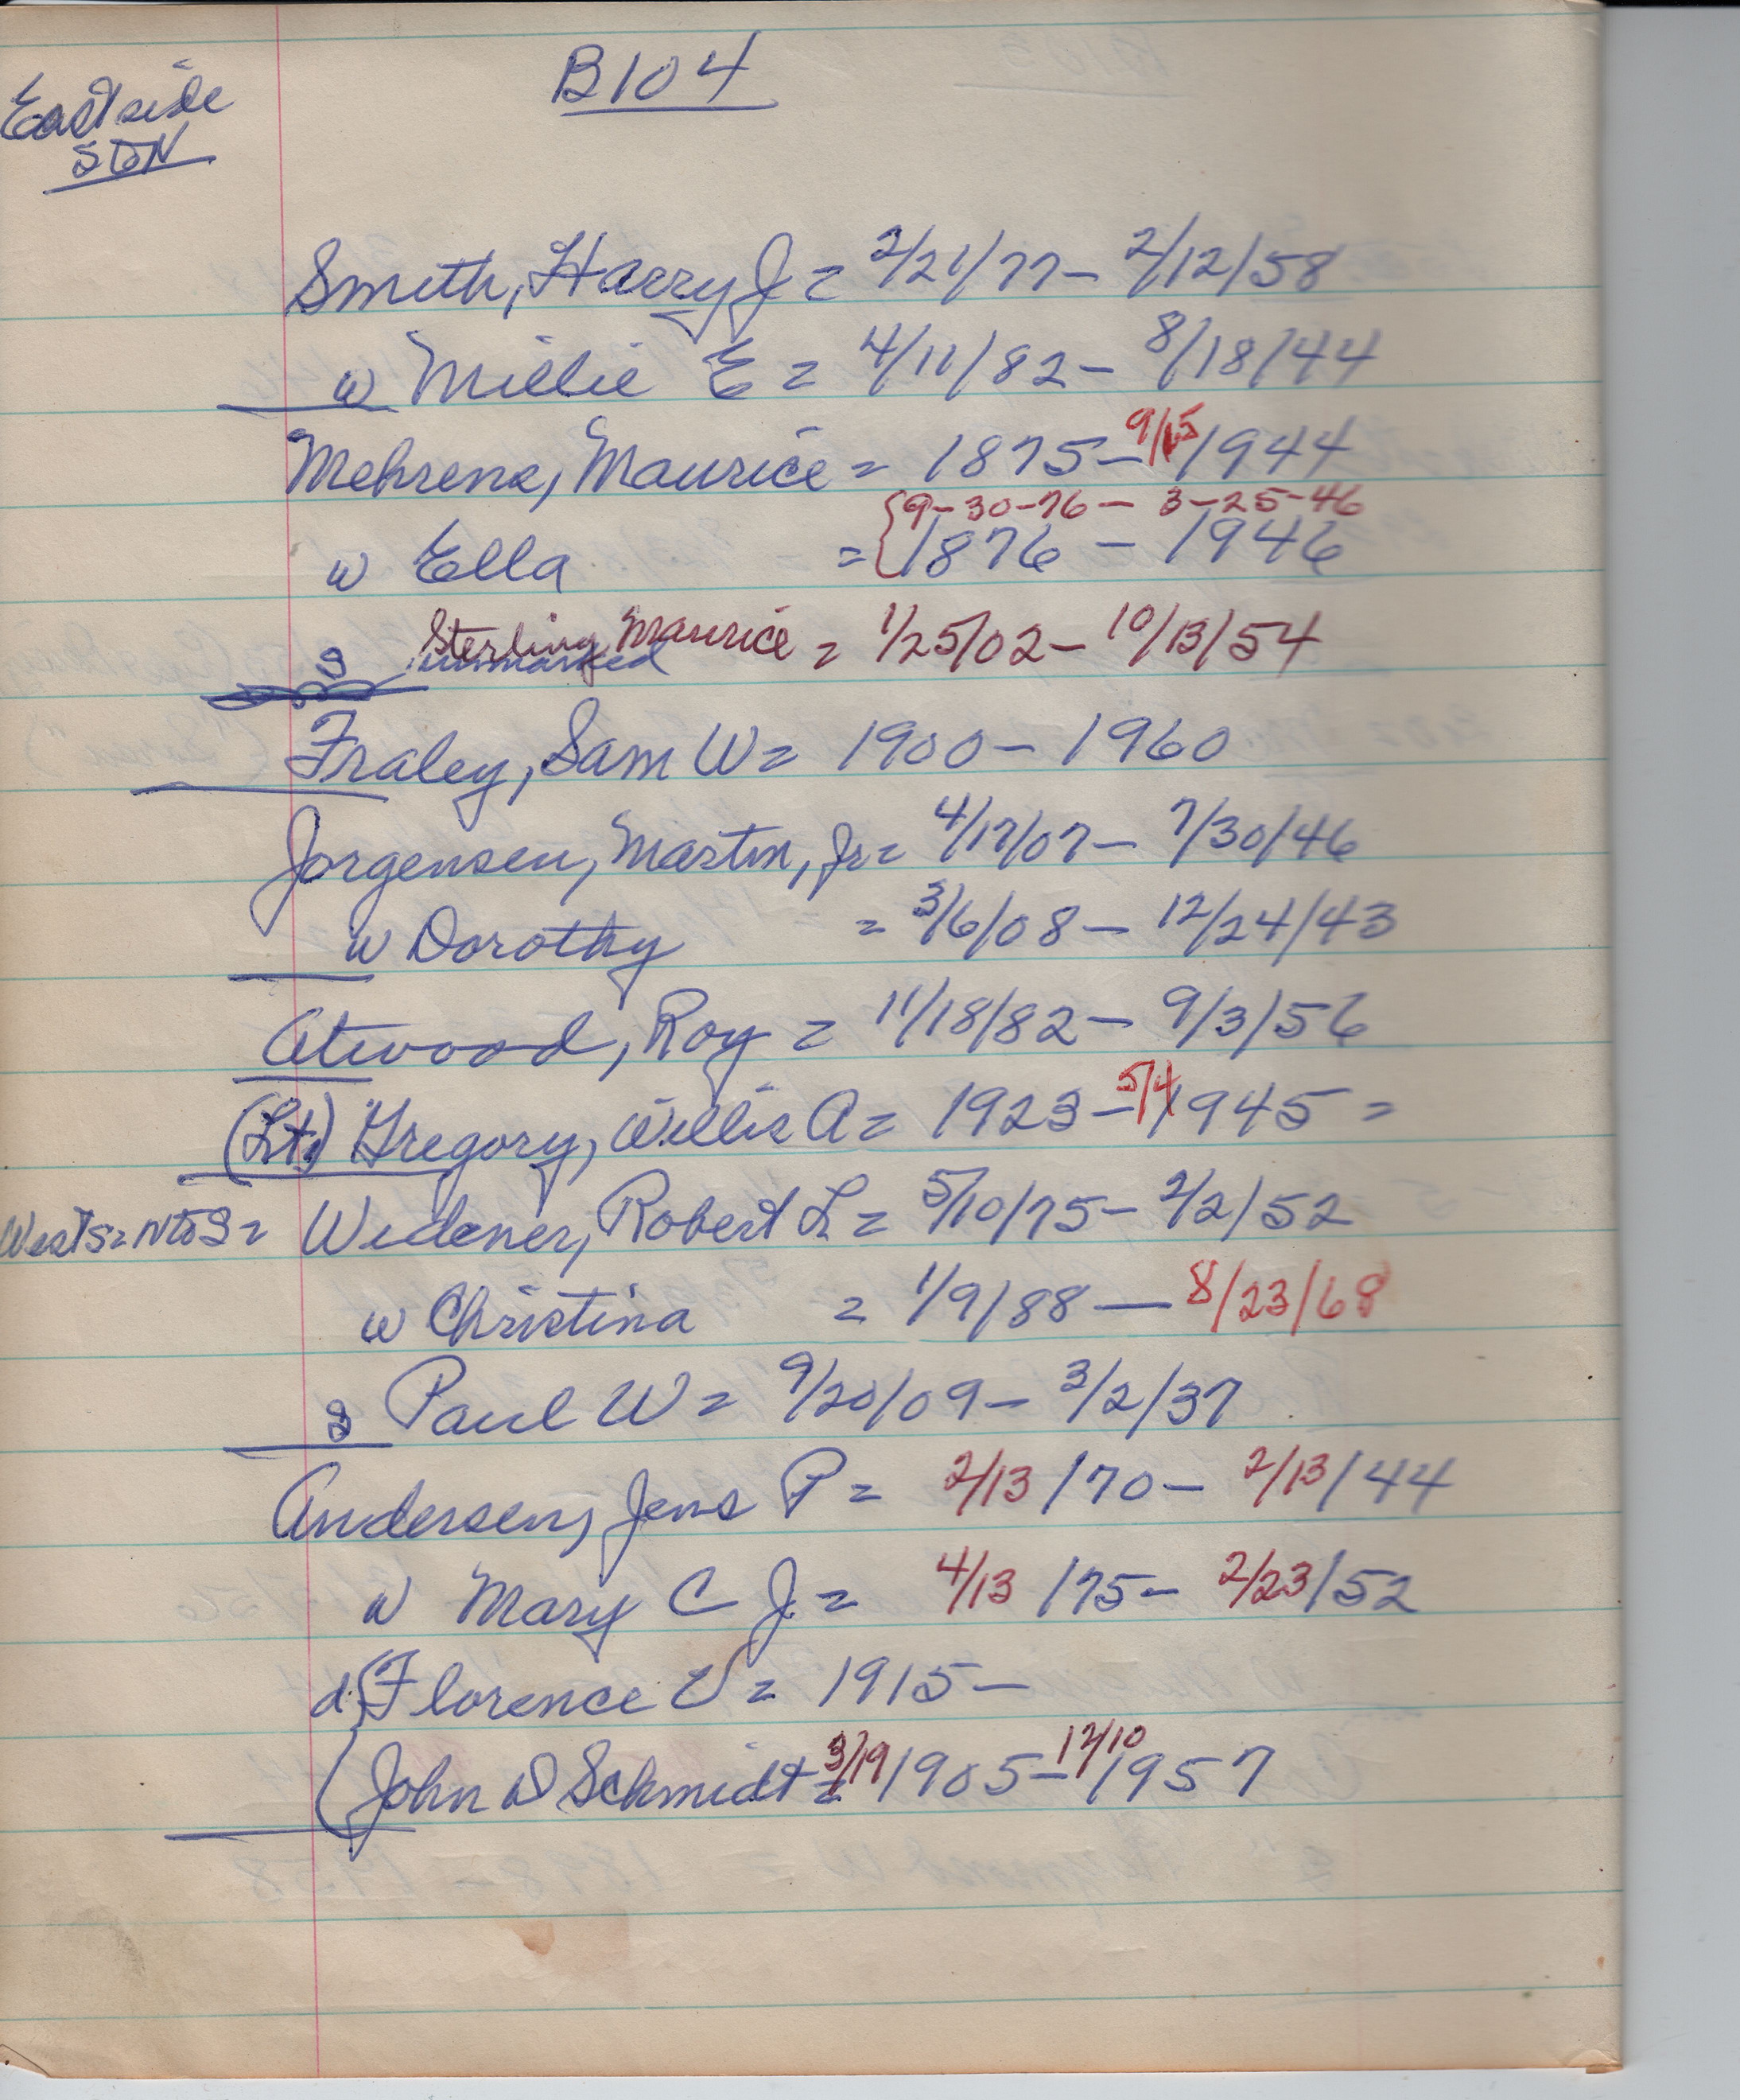 B104
Eastside
S to N
Smith, Harry J = 2/21/77 - 2/12/58
w Millie E = 4/11/82 - 8/18/44
Mehrens, Maurice = 1875 - 9/15 1944
{9-30-76 - 3-25-46
w Ella = 1876 - 1946
s Sterling Maurice = 1/25/02 - 10/13/54
unmarked
Fraley, Sam W = 1900 - 1960
Jorgensen, Martin, Jr = 4/17/07 - 7/30/46
w Dorothy = 3/6/08 - 12/24/43
Atwood, Roy = 11/18/82 - 9/3/56
(Lt.) Gregory, Willis A = 1923 - 5/4 1945 =
West S = N to S = Widener, Robert L = 5/10/75 - 2/2/52
w Christina = 1/9/88 - 8/23/68
s Paul W = 9/20/09 - 3/2/37
Andersen, Jens P = 2/13/70 - 2/13/44
w Mary C J = 4/13/75 - 2/23/52
d (Florence V = 1915 -
(John D Schmidt = 3/19/1905 - 12/10/1957